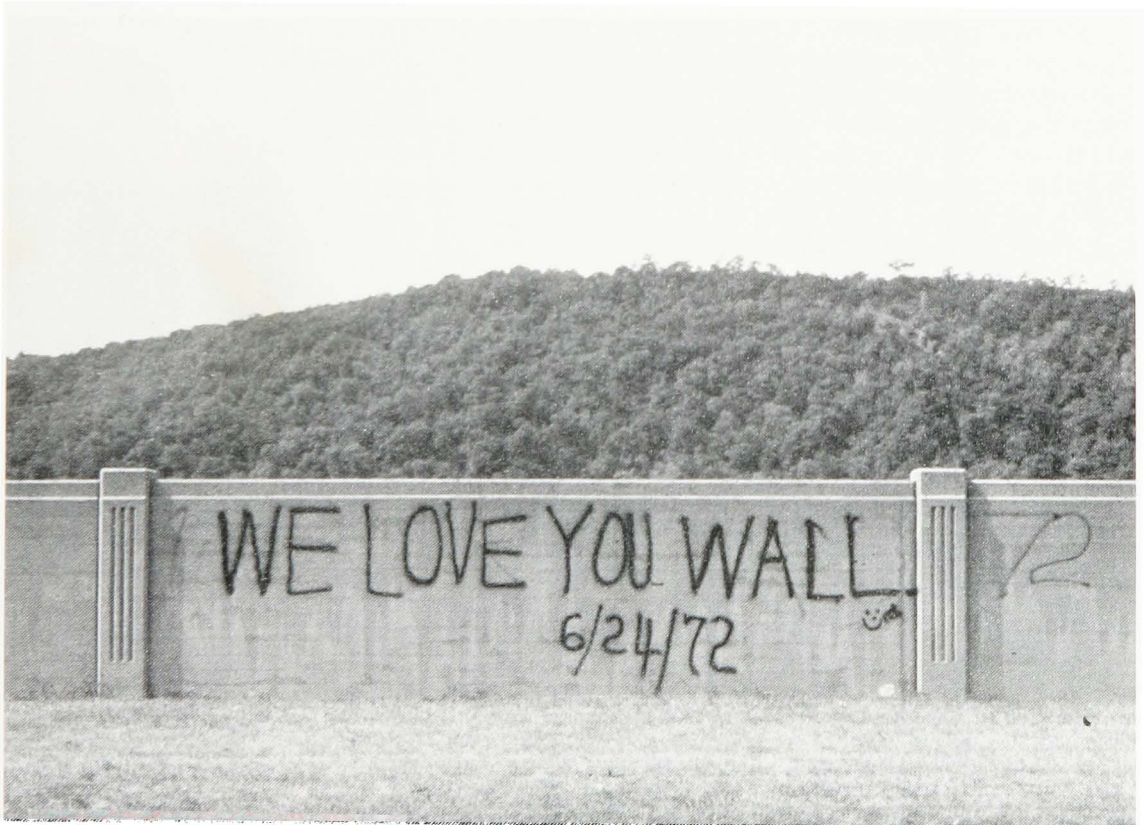 WE LOVE YOU WALL
6/24/72
72